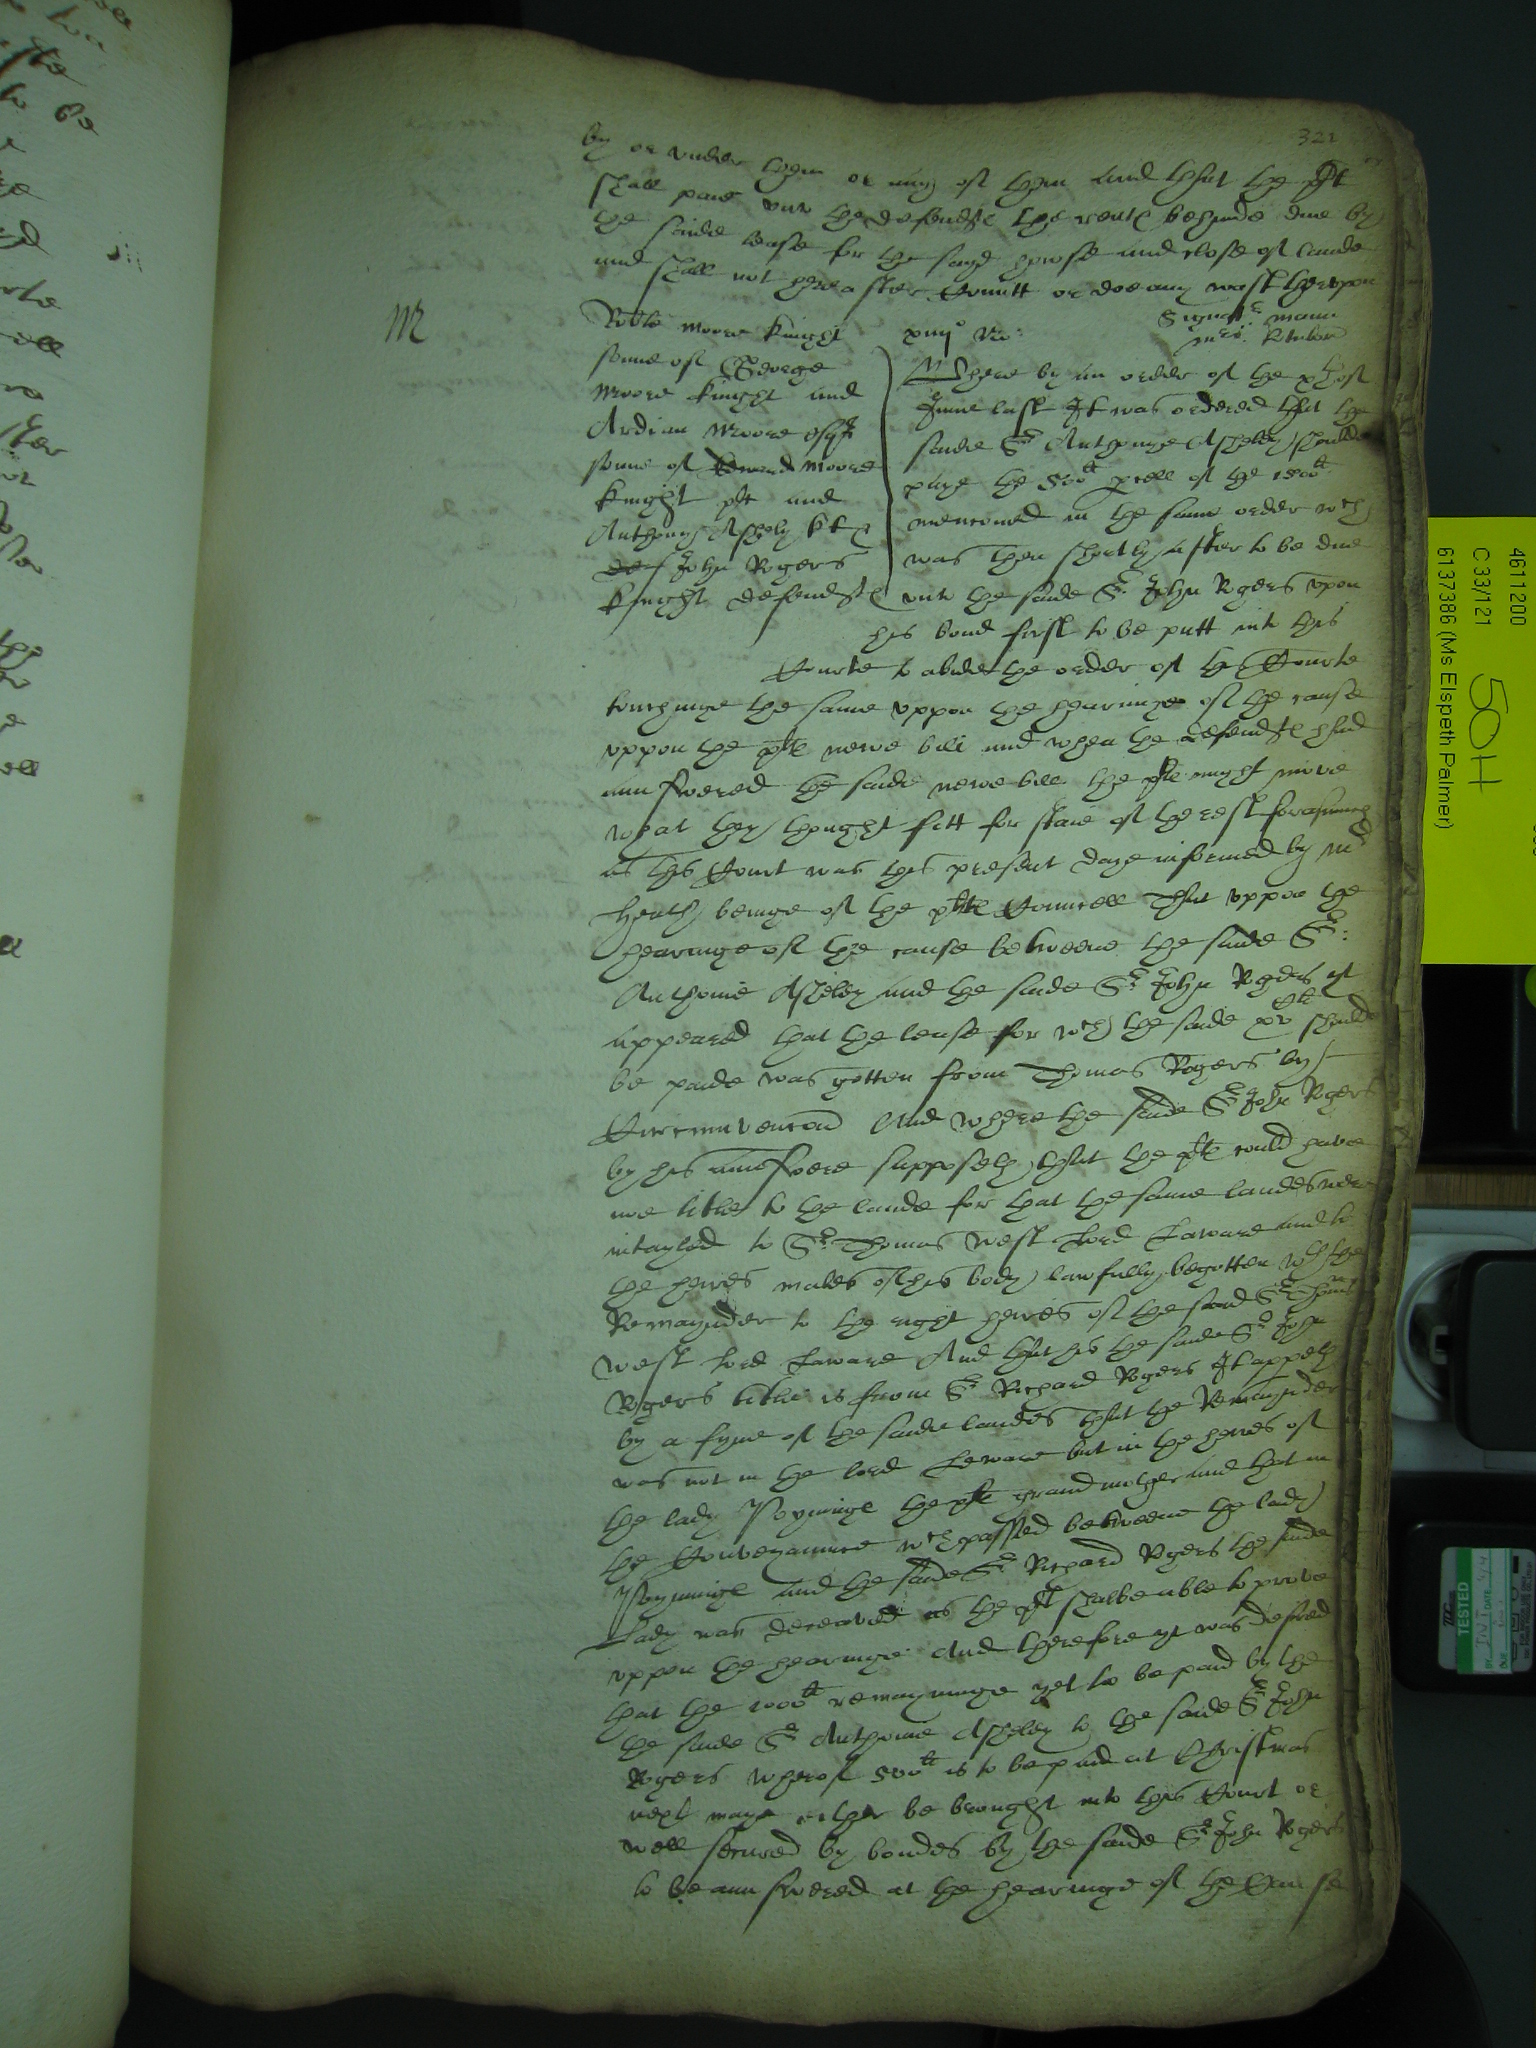 321
by or under them or any of them and that the plt
shall paie unto the defendtes the rentes behinde due by
the saide lease for the sayd house and close of lande
and shall not hereafter Comitt or doe any wast thereupon
M
Robte Moore knight
sonne of George
Moore knight and
Ardian Moore esqr
sonne of Edward Moore
knight plt and
Anthony Ashely kt &
def John Rogers
knight defendtes
xviijo No:
Signatr manu
mri
Where by an order of the xth of
June last It was ordered that the
saide Sr Anthonye Ashelay shoulde
paye the 500li pcell of the 1500li
mencioned in the same order wch
was then shortly after to be due
unto the saide Sr John Rogers upon
his bond first to be putt into this
Courte to abide the order of the Courte
touchinge the same uppon the hearinge of the cause
uppon the pltes newe bill and when the defendtes had
aunswered the saide newe bill the pltes might move
what they thought fitt for staie of the rest forasmuch
as this Court was this present daye informed by Mr
Heath beinge of the pltes Councell That uppon the
hearinge of the cause betweene the saide Sr:
Anthonie Asheley and the saide Sr John Rogers yt
appeared that the lease for wch the saide xvCli should
be paide was gotten from Thomas Rogers by
Circumvencon And where the saide Sr John Rogers
by his aunswere supposeth that the pltes could have
noe title to the lande for that the same landes were
intayled to Sr Thomas West Lord Laware and to
the heires males of his body lawfully begotten wth the
Remaynder to the right heires of the said Sr Thomas
West Lord Laware And that his the saide Sr John
Rogers title is from Sr Richard Rogers It appeth
by a fyne of the saide landes that the Remaynder
was not in the lord Leware but in the heires of
the lady Poyninge the pltes grandmother and that in
the Conveyaunce wch passed betweene the lady
Poyninge and the saide Sr Richard Rogers the saide
Lady was deceaved as the plt shalbe able to prove
uppon the hearinge And therefore yt was desired
that the 1000li remayninge yet to be paid by the
the saide Sr Anthonie Asheley to the saide Sr John
Rogers whereof 500li is to be paid at Christmas
next maye either be brought into this Court or
well secured by bondes by the saide Sr John Rogers
to be aunswered at the hearinge of the Cause
4611200
C 33/121
6137386 (Ms Elspeth Palmer)
50H
TESTED